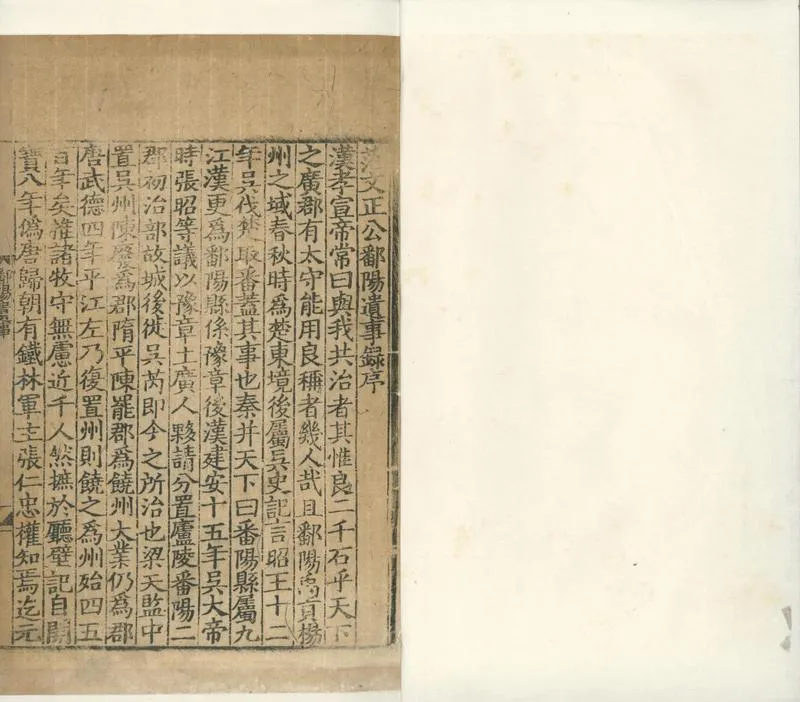 范文正公鄱陽遺事錄序
漢孝宣帝常曰與我共治者其惟良二千石乎天下
之廣郡有太守能用良稱者幾人哉且鄱陽禹貢楊
州之域春秋時爲楚東境後屬吳史記言昭王十二
年吳伐楚取番蓋其事也秦并天下曰番陽縣屬九
江漢更爲鄱陽縣係豫章後漢建安十五年吳大帝
時張昭等議以豫章土廣人夥請分置廬陵番陽二
郡初治部故城後徙吳芮即今之所治也梁天監中
置吳州陳廢爲郡隋平陳罷郡爲饒州大業仍爲郡
唐武德四年平江左乃復置州則饒之爲州殆四五
百年矣雖諸牧守無慮近千人然摭於廳壁記自開
寶八年僞唐歸朝有鐵林軍主張仁忠權知焉迄元